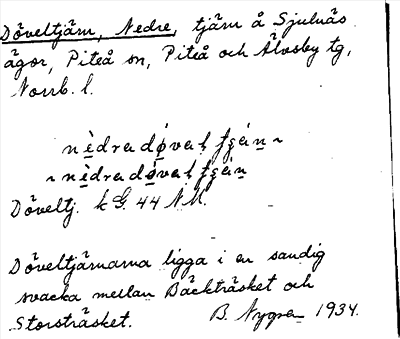 Döveltjärn, Nedre, tjärn å Sjulnäs
ägor, Piteå sn, Piteå och Älvsby tg,
Norrb. l.
Döveltj. k G. 44 NM.
Döveltjärnarna ligga i en sandig
svacka mellan Bäckträsket och
Storsträsket. B. Nygren 1934.